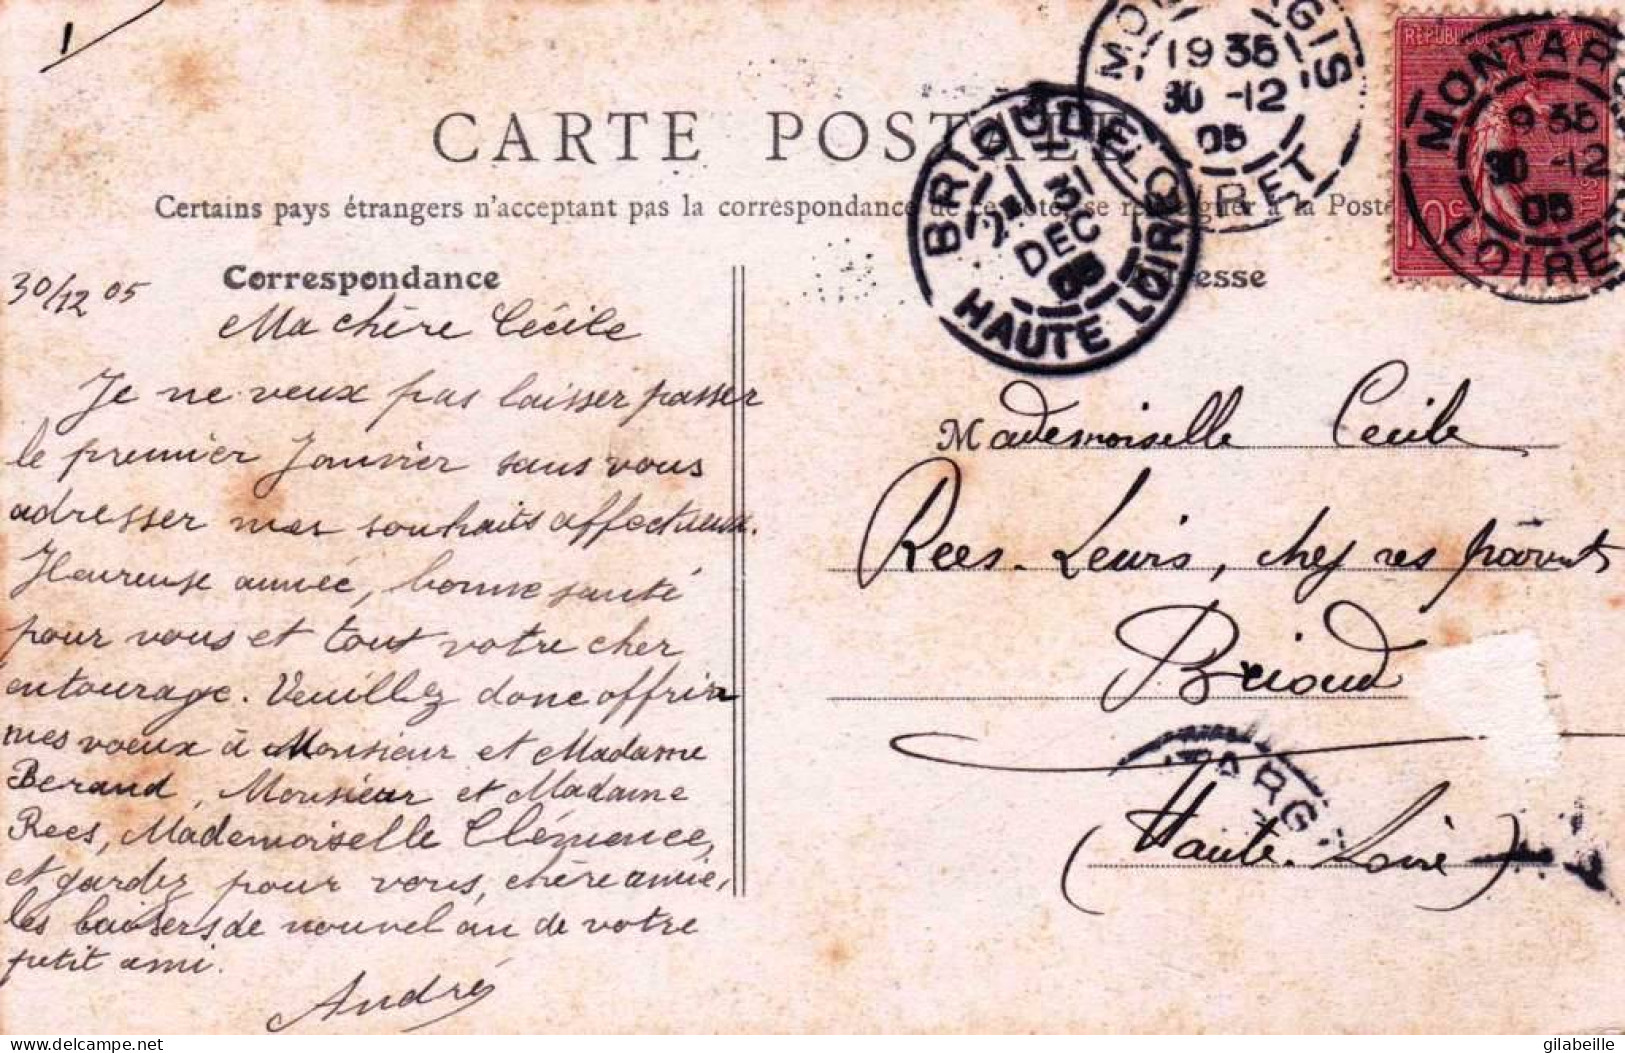 1
CARTE POSTALE
Certains pays étrangers n'acceptent pas la correspondance de ce côté, se renseigner à la Poste
Correspondance
30/12 05
Ma chère Cécile
Je ne veux pas laisser passer
le premier Janvier sans vous
adresser mes souhaits affectueux.
Heureuse année, bonne santé
pour vous et tout votre cher
entourage. Veuillez donc offrir
mes voeux à Monsieur et Madame
Beraud, Monsieur et Madame
Rees, Mademoiselle Clémence,
et gardez pour vous, chère amie,
les baisers de nouvel an de votre
petit ami.
André
MONTARGIS
19 35
30 -12
05
LOIRET
BRIOUDE
31
DEC
05
HAUTE LOIRE
REPUBLIQUE FRANÇAISE
10c
MONTARGIS
19 35
30 -12
05
LOIRET
Adresse
Mademoiselle Cécile
Rees-Lewis, chez ses parents
Brioud
ARG
(Haute-Loire)
delcampe.net
gilabeille